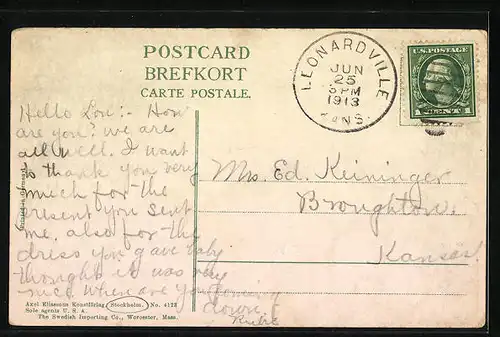 POSTCARD
BREFKORT
CARTE POSTALE.
LEONARDVILLE
JUN
25
5 PM
1913
KANS.
U.S. POSTAGE
1 CENTS 1
Hello Lou:- How
are you? we are
all well. I want
to thank you very
much for the
present you sent
me, also for the
dress you gave baby
thought it was very
nice. When are you coming
down.
Rubie
Mrs. Ed. Keininger
Broughton,
Kansas.
Axel Eliassons Konstförlag Stockholm. No. 4173
Sole agents U. S. A.
The Swedish Importing Co., Worcester, Mass.